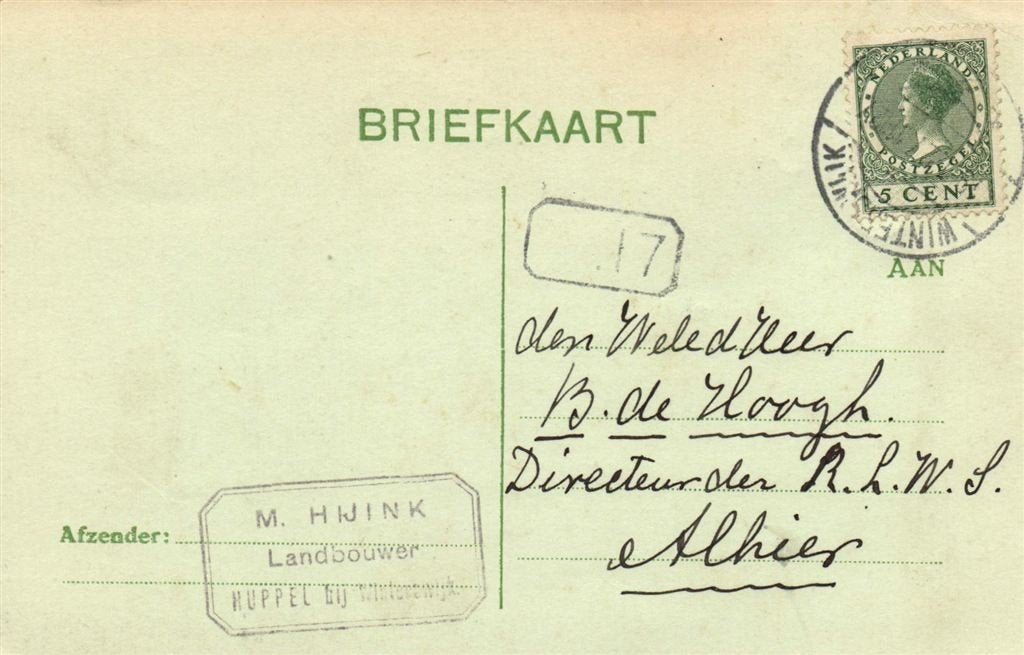 BRIEFKAART
NEDERLAND
POSTZEGEL
5 CENT
WINTERSWIJK
17
AAN
den WeledHeer
B. de Hoogh.
Directeur der R. L. W. S.
Alhier
Afzender:
M. HIJINK
Landbouwer
HUPPEL bij Winterswijk.